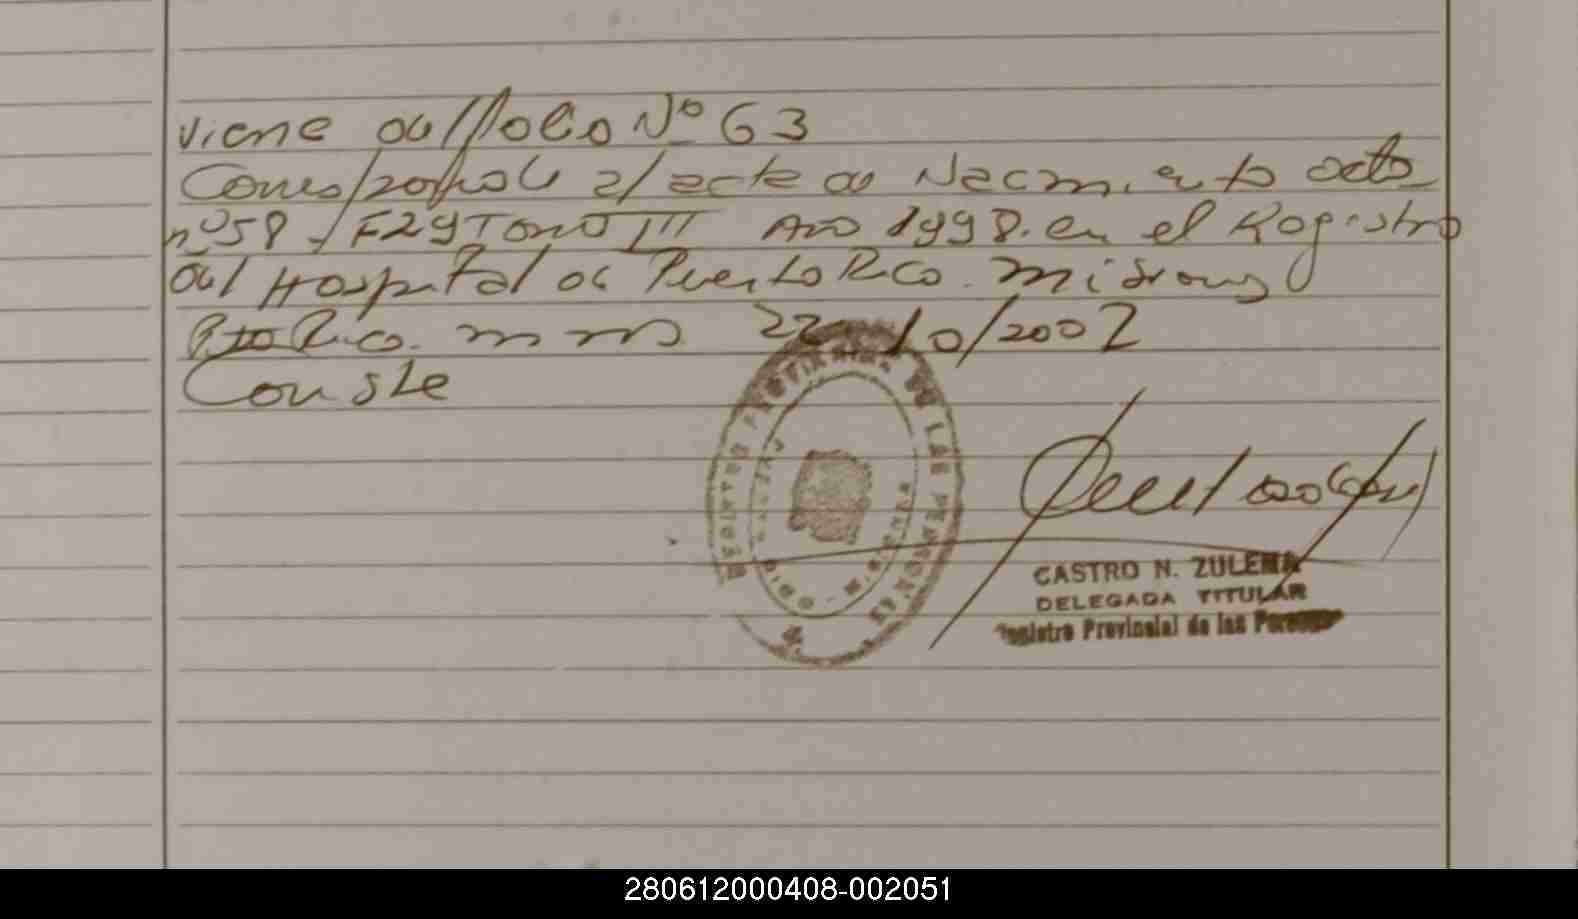 viene del folio Nº 63
Corresponde al acta de Nacimiento acta
nº 58 - F29 Tomo III Año 1998. en el Registro
del Hospital de Puerto Rico. Misiones
Pto Rico. mnes 22/10/2002
Conste
DELEGACION PROVINCIAL DE LAS PERSONAS
CASTRO N. ZULEMA
DELEGADA TITULAR
Registro Provincial de las Personas
280612000408-002051